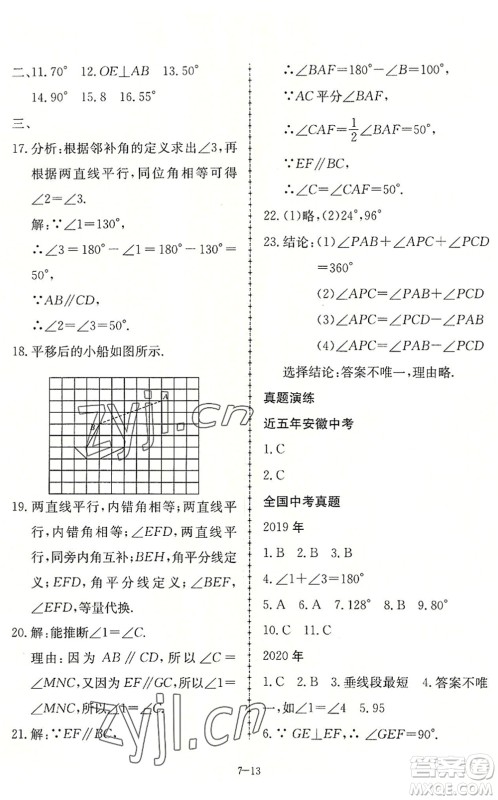 二、11.70°　12.OE⊥AB　13.50°
14.90°　15.8　16.55°
三、
17.分析:根据邻补角的定义求出∠3,再
由两直线平行,同位角相等可得
∠2=∠3.
解:∵∠1=130°,
∴∠3=180°-∠1=180°-130°=
50°,
∵AB∥CD,
∴∠2=∠3=50°.
18.平移后的小船如图所示.
A
B
19.两直线平行,内错角相等;两直线平
行,内错角相等;∠EFD,两直线平行,
同旁内角互补;BEH,角平分线定义;
∠EFD,角平分线定义;∠BEF,
∠EFD,等量代换.
20.解:能推断∠1=∠C.
理由:因为AB∥CD,所以∠C=
∠MNC,又因为EF∥GC,所以∠1=
∠MNC,所以∠1=∠C.
21.解:∵∠B=80°,EF∥BC,
∴∠BAF=180°-∠B=100°,
∵AC平分∠BAF,
∴∠CAF=1/2∠BAF=50°,
∵EF∥BC,
∴∠C=∠CAF=50°.
22.(1)略,(2)24°,96°
23.结论:(1)∠PAB+∠APC+∠PCD
=360°
(2)∠APC=∠PAB+∠PCD
(3)∠APC=∠PCD-∠PAB
(4)∠APC=∠PAB-∠PCD
选择结论:答案不唯一,理由略.
真题演练
近五年安徽中考
1.C
2.C
全国中考真题
2019年
1.B　2.B　3.C
4.∠1+∠3=180°
5.A　6.A　7.128°　8.C
9.C
2020年
1.C　2.B　3.垂线段最短　4.答案不
唯一　5.95
6.∵GE⊥EF,∴∠GEF=90°.
7-13
zyjl.cn
zyjl.cn
答案圈
MXQE.COM